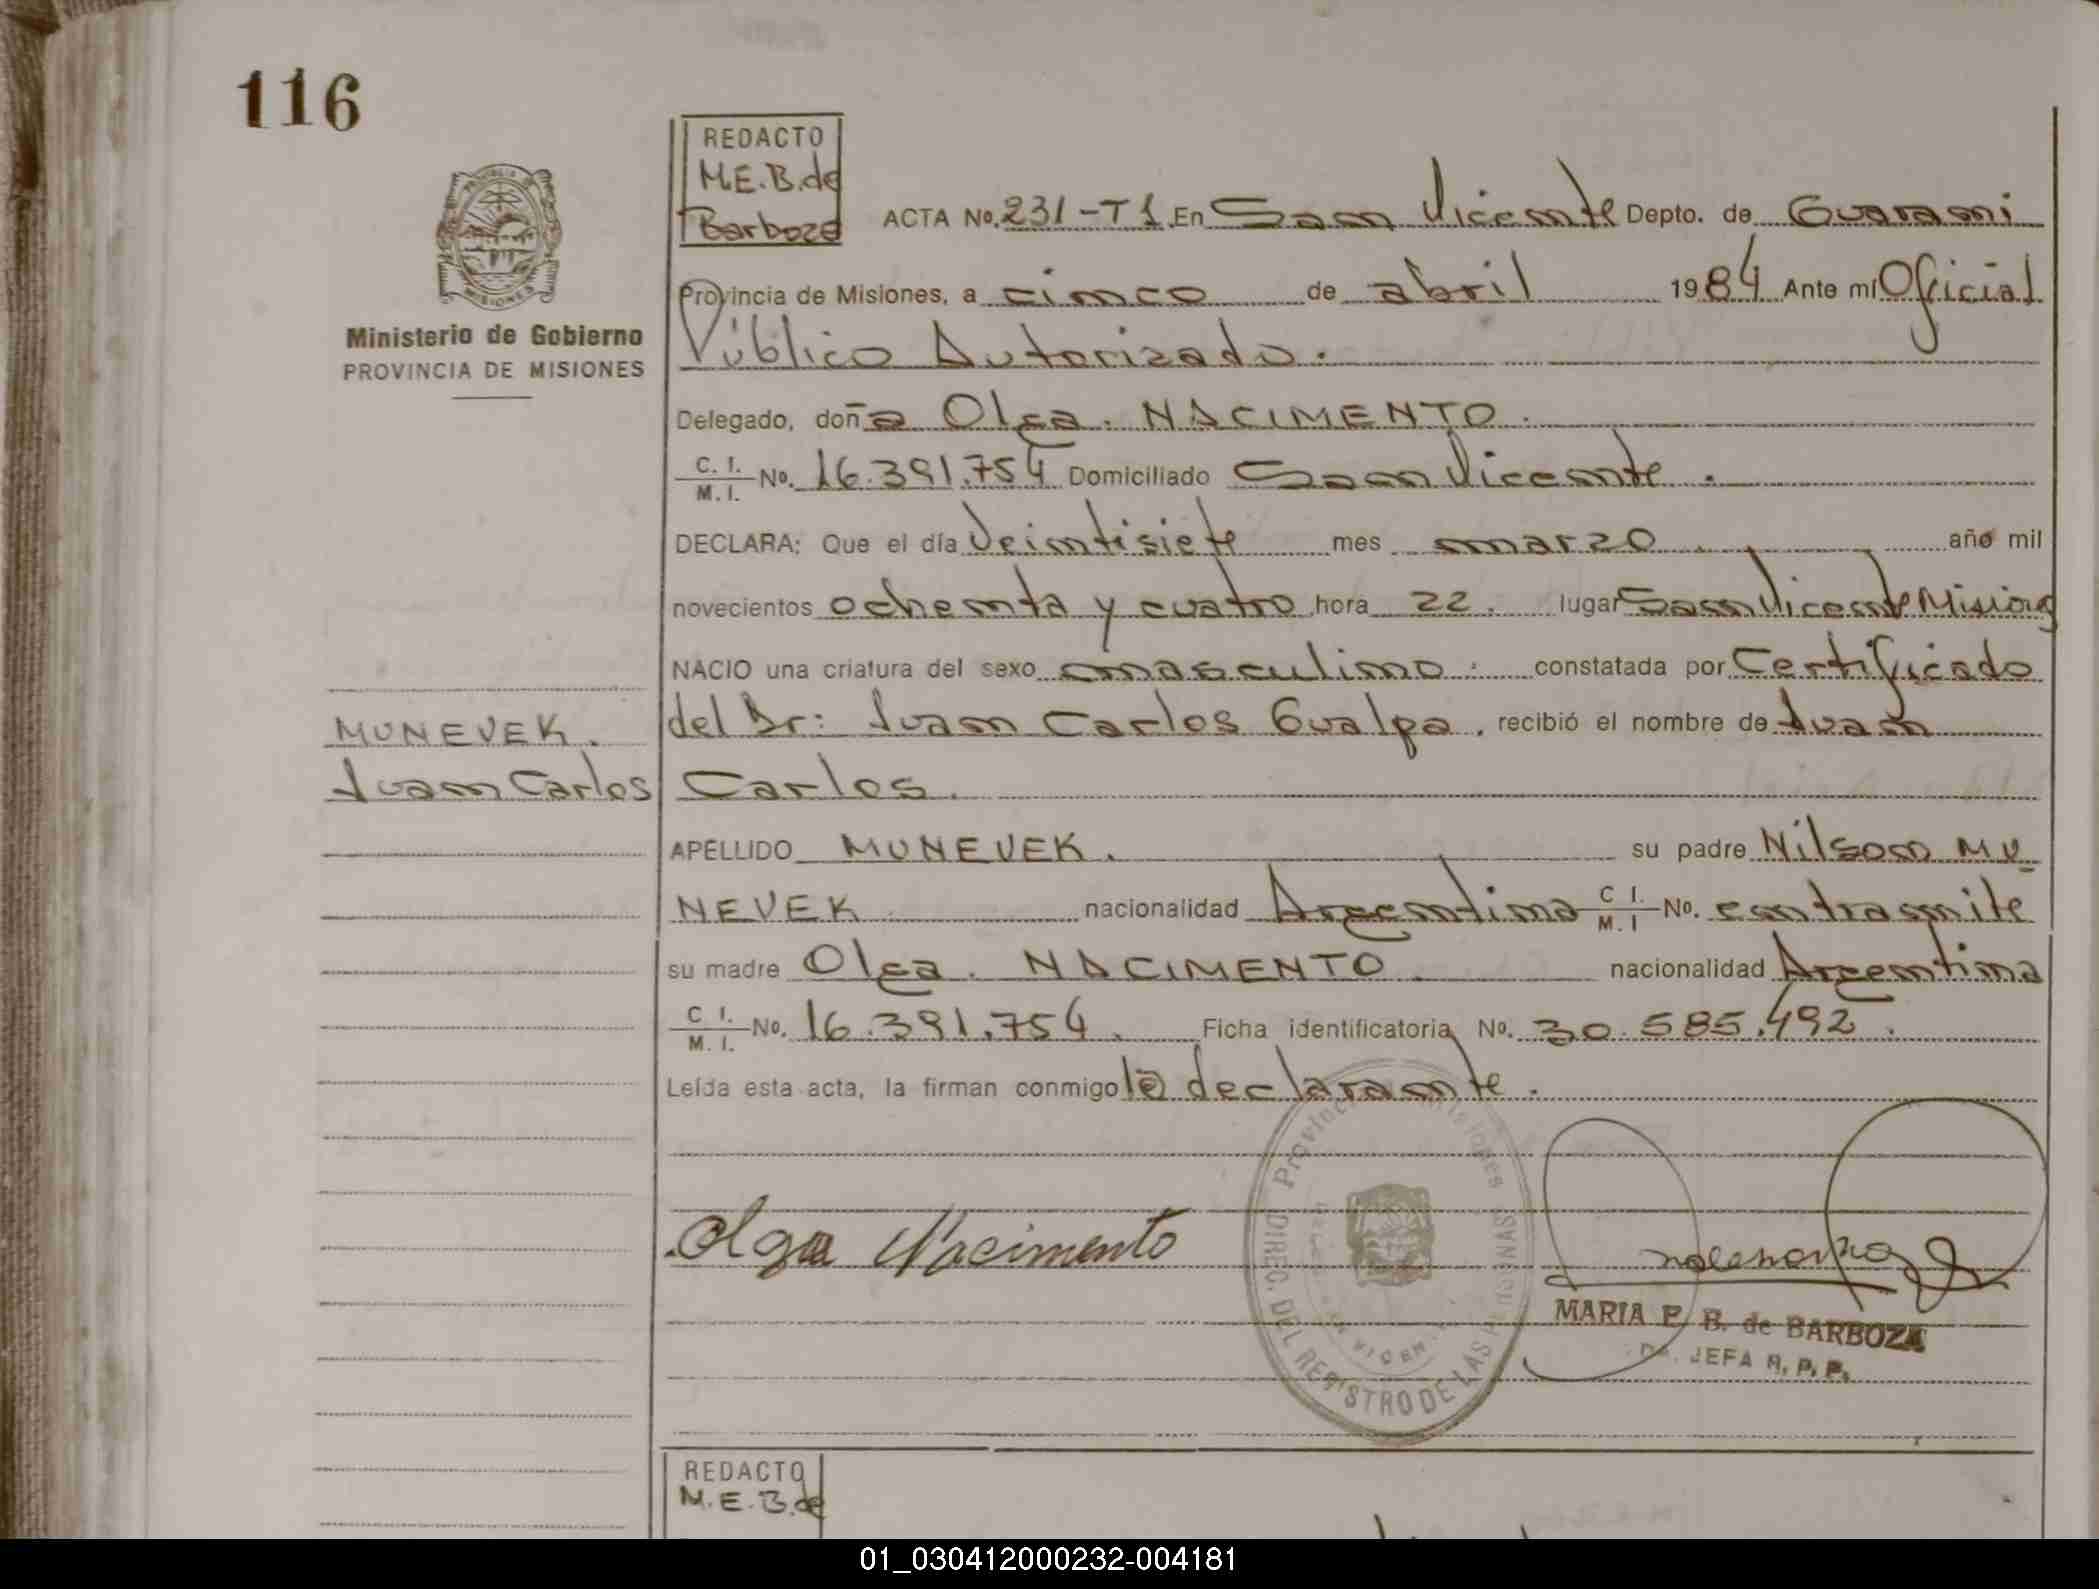 116
REDACTO
M.E.B.de
Barboza
PROVINCIA DE
MISIONES
Ministerio de Gobierno
PROVINCIA DE MISIONES
ACTA No. 231-T1 En San Vicente Depto. de Guarani
Provincia de Misiones, a cinco de abril 1984 Ante mi Oficial
Público Autorizado.
Delegado, doña Olga. NACIMENTO.
C. I. / M. I. No. 16.391.754 Domiciliado San Vicente.
DECLARA: Que el día Veintisiete mes marzo año mil
novecientos ochenta y cuatro hora 22. lugar San Vicente Misiones
NACIO una criatura del sexo masculino. constatada por Certificado
MUNEVEK.
del Dr: Juan Carlos Gualpa. recibió el nombre de Juan
Juan Carlos
Carlos.
APELLIDO MUNEVEK. su padre Nilson MU
NEVEK nacionalidad Argentina C I. / M. I No. entramite
su madre Olga. NACIMENTO. nacionalidad Argentina
C I. / M. I. No. 16.391.754. Ficha identificatoria No. 30.585.492.
Leída esta acta, la firman conmigo la declarante.
Olga Nacimento
Provincia Misiones
DIREC. DEL REGISTRO DE LAS PERSONAS
MARIA E. B. de BARBOZA
JEFA R. P. P.
REDACTO
M.E.B.de
01_030412000232-004181